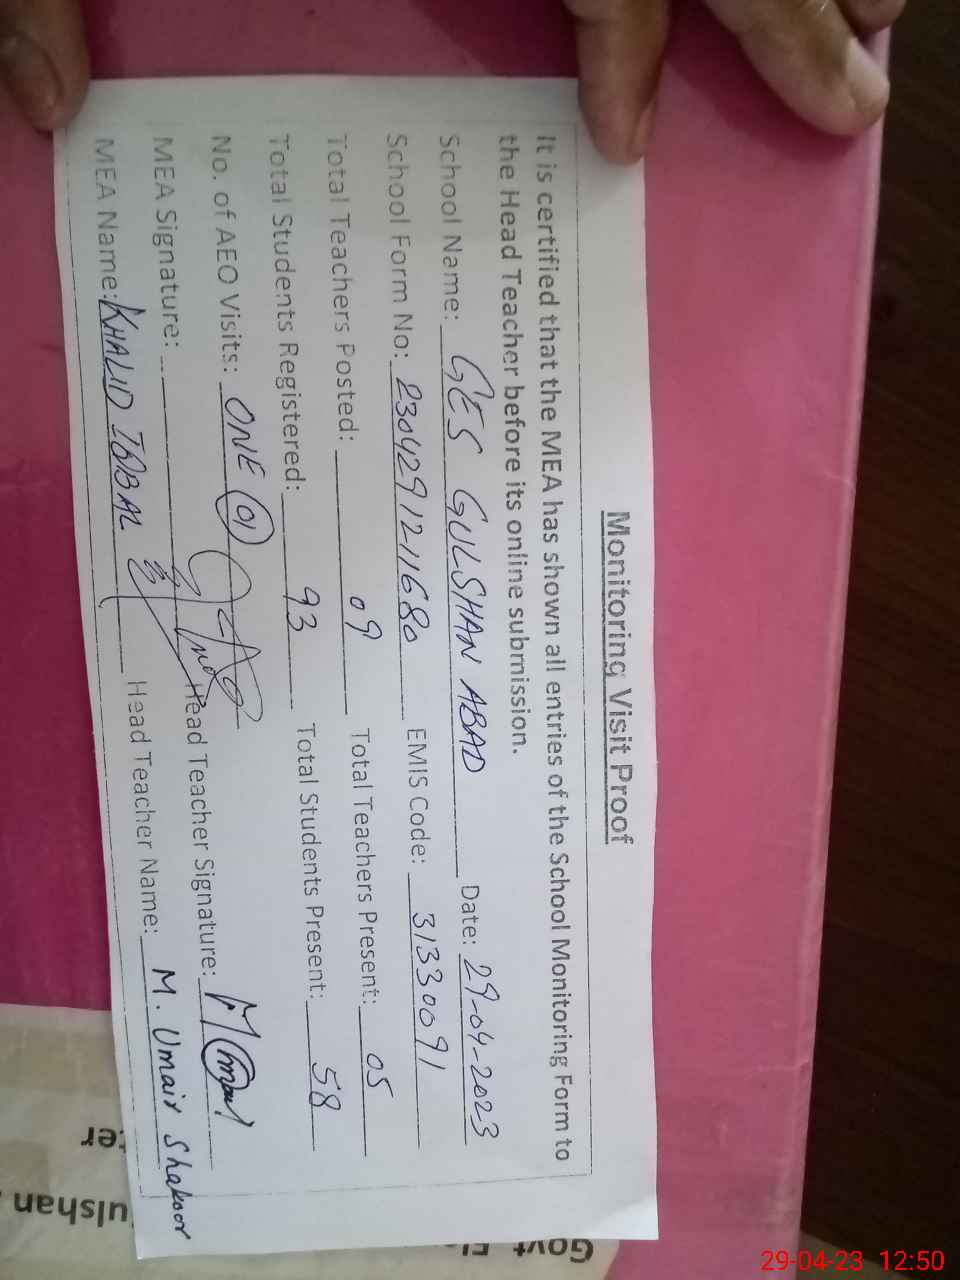 Monitoring Visit Proof
It is certified that the MEA has shown all entries of the School Monitoring Form to
the Head Teacher before its online submission.
School Name: GES GULSHAN ABAD Date: 29-04-2023
School Form No: 2304291211680 EMIS Code: 31330091
Total Teachers Posted: 09 Total Teachers Present: 05
Total Students Registered: 93 Total Students Present: 58
No. of AEO Visits: ONE 01
MEA Signature: Head Teacher Signature:
MEA Name: KHALID IQBAL Head Teacher Name: M. Umair Shakoor
Govt
ulshan
ter
29-04-23 12:50